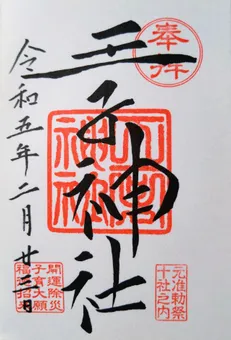 奉拝
王子神社
令和五年二月廿三日
元准勅祭
十社之内
開運除災
子育大願
招来